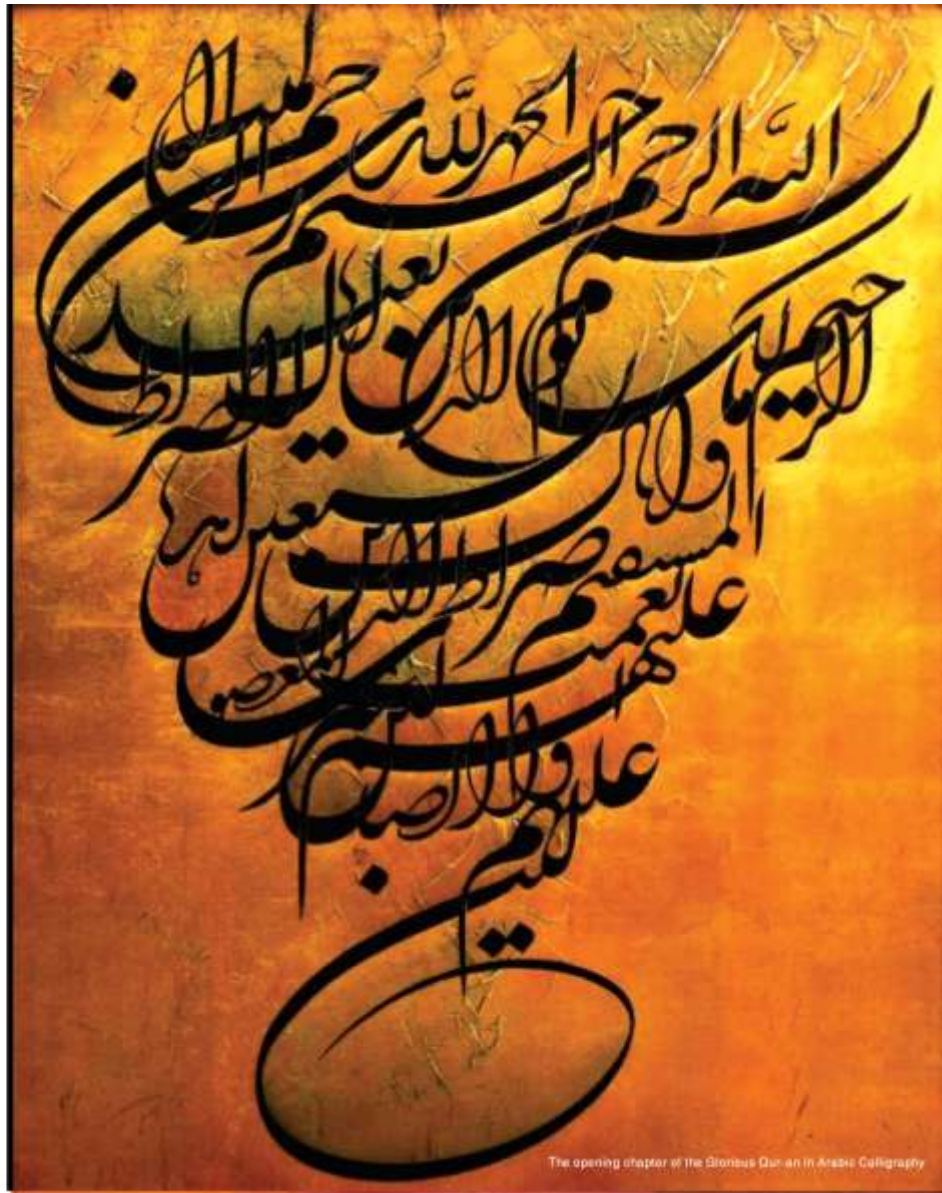 بسم الله الرحمن الرحيم الحمد لله رب العالمين
الرحمن الرحيم ملك يوم الدين اياك نعبد
واياك نستعين اهدنا الصراط
المستقيم صراط الذين انعمت
عليهم غير المغضوب
عليهم ولا الضالين
The opening chapter of the Glorious Qur-an in Arabic Calligraphy